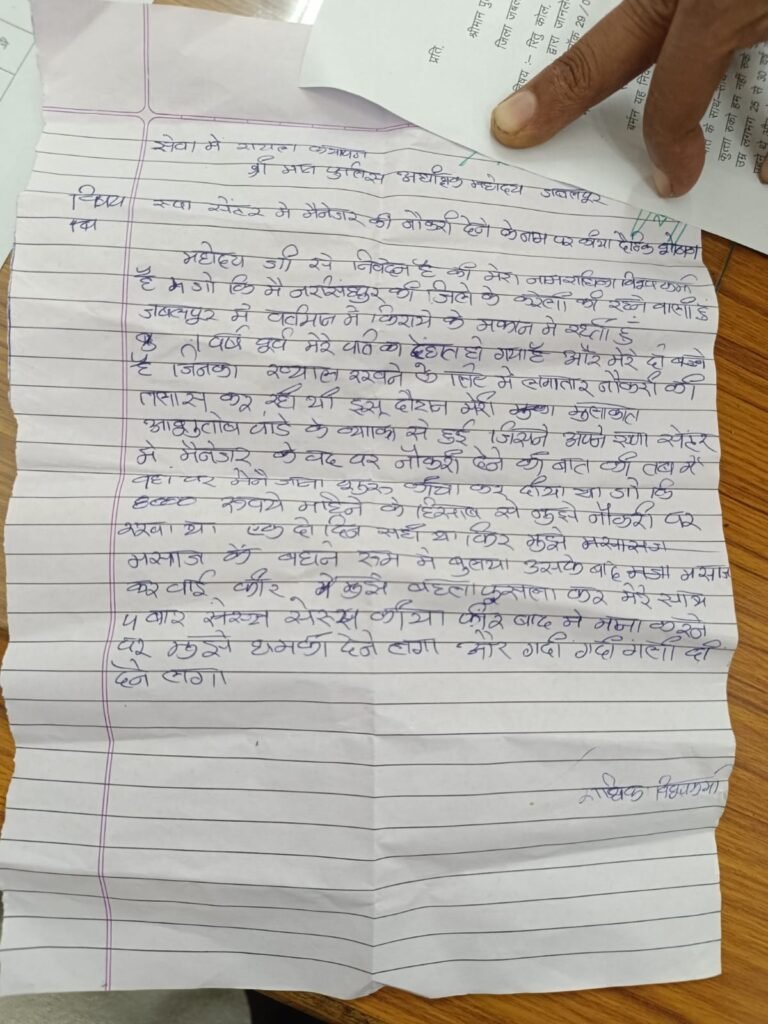 सेवा में
श्री मान पुलिस अधीक्षक महोदय जबलपुर
विषय स्पा सेंटर मे मैनेजर की नौकरी देने के नाम पर कीया दैनिक शोषण
महोदय जी से निवेदन है की मेरा नाम राधिका विश्वकर्मा
है जो कि मै नरसिंहपुर की जिले के करेली की रहने वाली हुं
जबलपुर मे वर्तमान मे किराये के मकान मे रहती हुं
वर्ष पूर्व मेरे पति का देहात हो गया है और मेरे दो बच्चे
है जिनका ख्याल रखने के लिए मे लगातार नौकरी की
तलास कर रही थी इस दौरान मेरी मुलाकात
आशुतोष पांडे के व्याक्ति से हुई जिसने अपने स्पा सेंटर
मे मैनेजर के पद पर नौकरी देने की बात की तब में
वहां पर मैने जाना शुरू कीया कर दीया था जो कि
8000 रूपये महिने के हिसाब से मुझे नौकरी पर
रखा था एक दो दिन सही था फिर मुझे मसासज
मसाज के बहाने रूम मे बुलया उसके बाद मसाज
करवाई और मुझे बहला फुसला कर मेरे साथ
4 बार सेक्स कीया और बाद मे मना करने
पर मुझे धमकी देने लगा और गंदी गंदी गाली दी
देने लगा
राधिका विश्वकर्मा
प्रति,
जिला जबल
विषय :- रितु कोल
द्वारा जानले
29/0